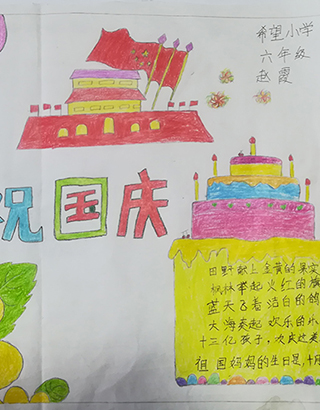 希望小学
六年级
赵霞
祝国庆
田野献上金黄的果实
枫林举起火红的旗
蓝天飞着洁白的鸽
大海奏起欢乐的水
十三亿孩子，欢庆这美
祖国妈妈的生日是，十月